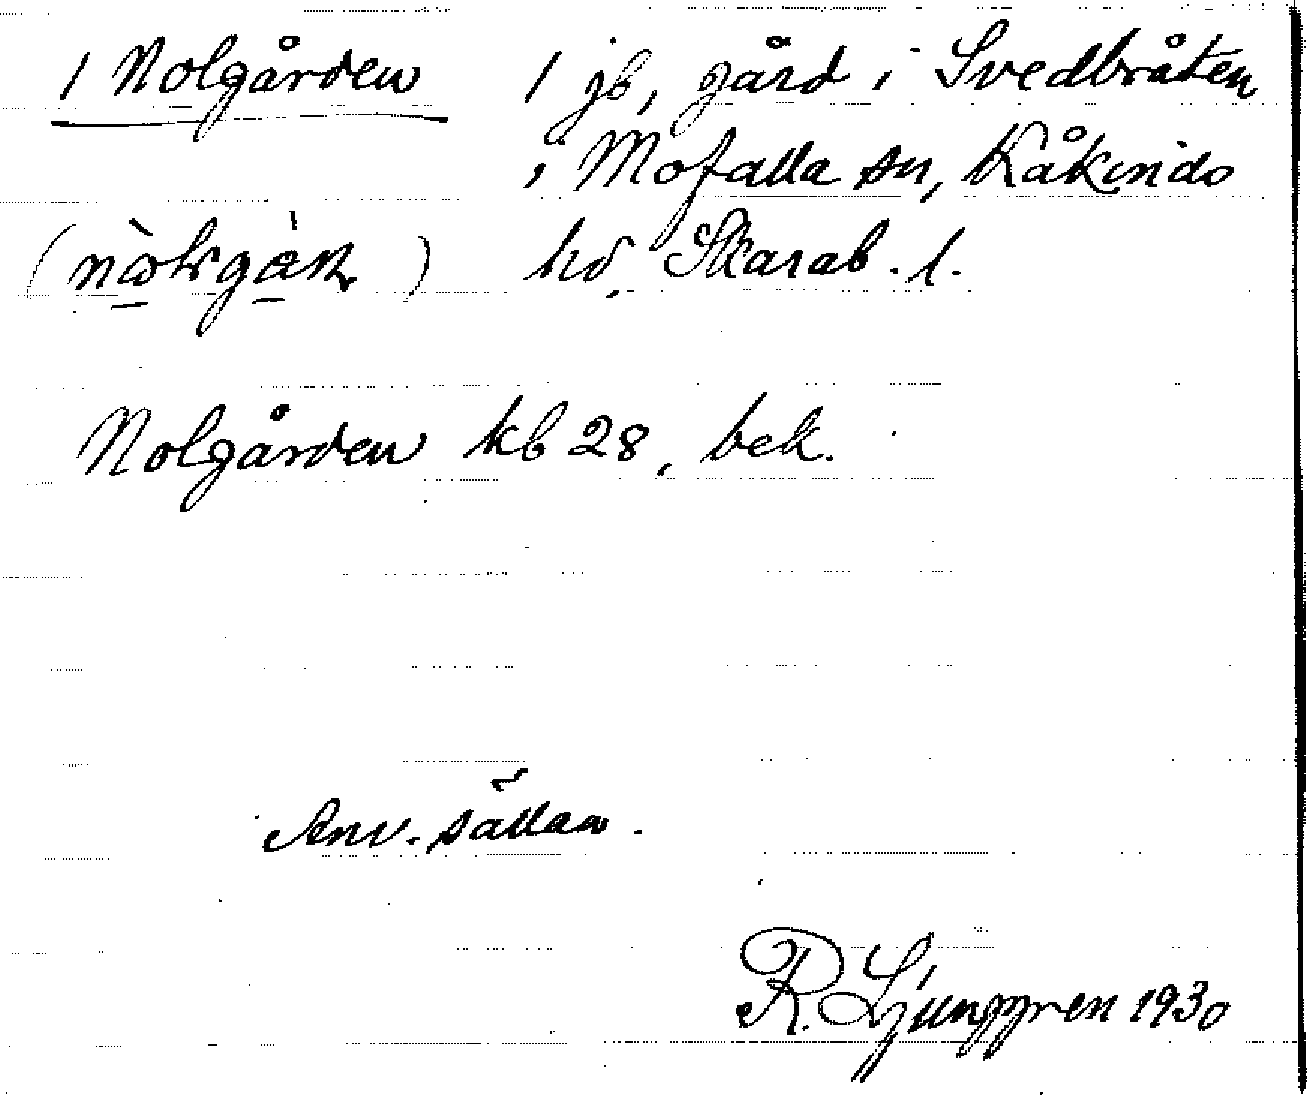 1 Nolgården 1 jb, gård i Svedbråten
i Mofalla sn, Kåkinds
hd, Skarab. l.
Nolgården kb 28, bek.
Anv. sällan.
R. Ljunggren 1930